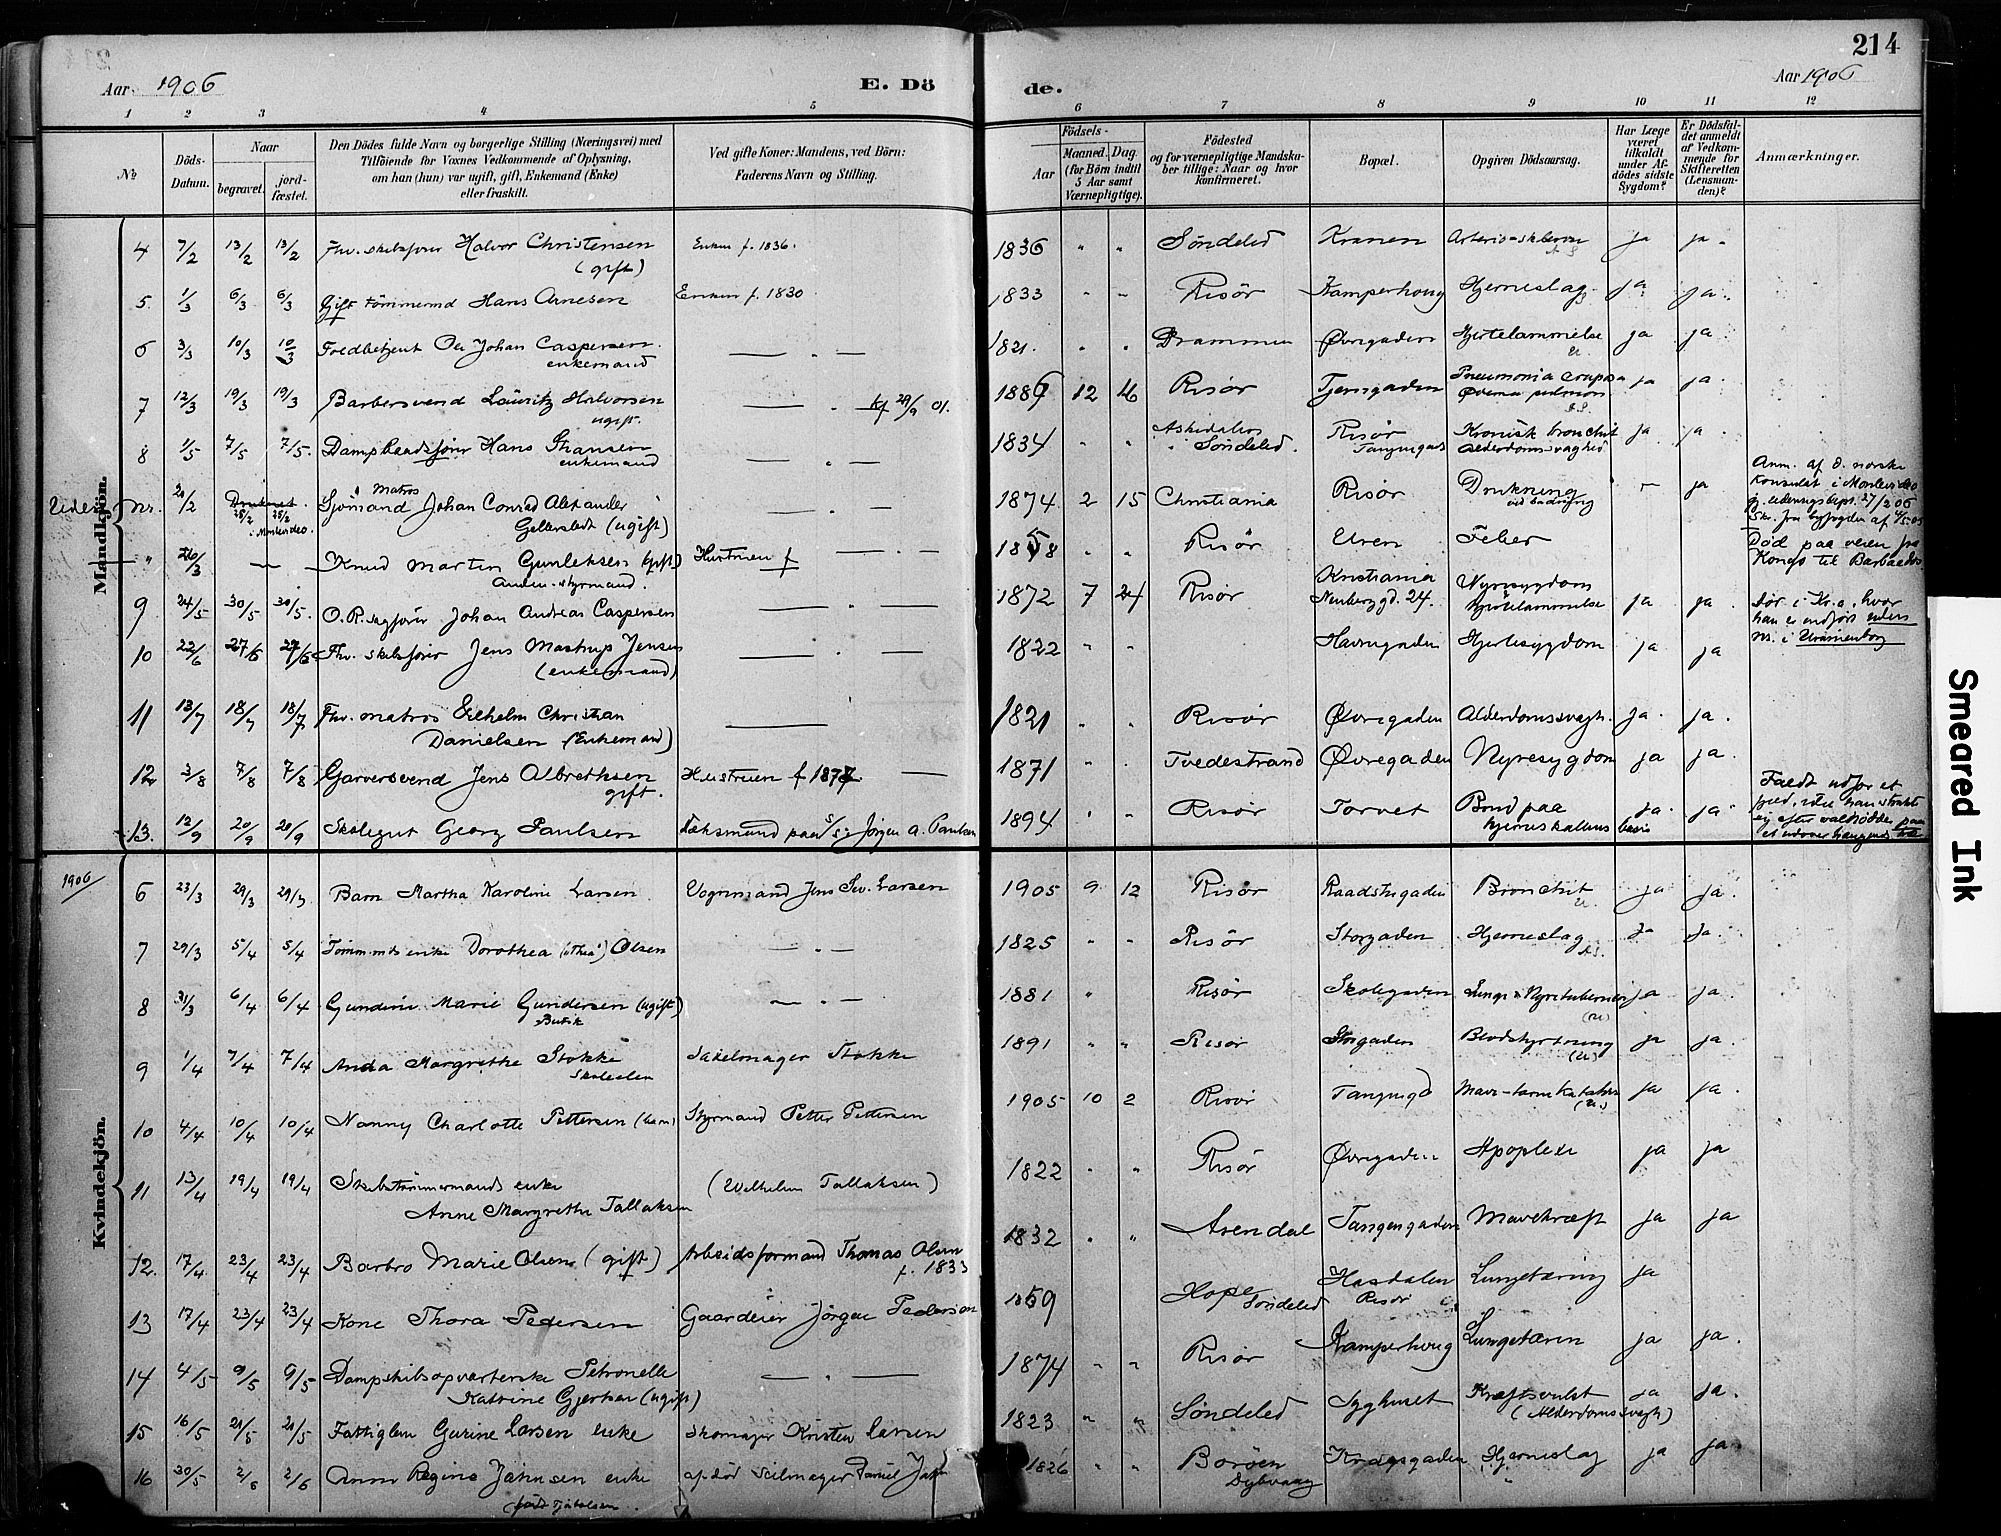 214
Aar 1906
E. Dö
de.
Aar 1906
1 2 3 4 5 6 7 8 9 10 11 12
№
Döds-Datum.
Naar
begravet.
jordfæstet.
Den Dödes fulde Navn og borgerlige Stilling (Næringsvei) med
Tilföiende for Voxnes Vedkommende af Oplysning,
om han (hun) var ugift, gift, Enkemand (Enke)
eller fraskilt.
Ved gifte Koner: Mandens, ved Börn:
Faderens Navn og Stilling.
Födsels-
Aar
Maaned. Dag
(for Börn indtil
5 Aar samt
Værnepligtige).
Födested
og for værnepligtige Mandskaber tillige: Naar og hvor
konfirmeret.
Bopæl.
Opgiven Dödsaarsag.
Har Læge
været
tilkaldt
under Afdödes sidste
Sygdom?
Er Dödsfaldet anmeldt
af Vedkommende for
Skifteretten
(Lensmanden)?
Anmærkninger.
Mandkjön.
4 7/2 13/2 13/2 Fhv. skibsfører Halvor Christensen (gift) Enken f. 1836. 1836 " " Søndeled Kranen ja ja.
5. 1/3 6/3 6/3 Gift tømmermd Hans Arnesen Enken f. 1830 1833 " " Risør Kamperhoug Hjerneslag. ja ja.
6 3/3 10/3 10/3 Johan Caspersen enkemand — " — 1821. " " Drammen Øvregaden Hjertelammelse ja ja.
7 12/3 19/3 19/3 Barbersvend Lauritz Halvorsen ugift. — " — 29/9 01. 1886 12 16 Risør Tjenngaden Pneumonia ja ja.
8 1/5 7/5 7/5. Hans enkemand — " — 1834 " " Søndeled. Risør Kronisk bronchit Alderdomssvaghed ja ja
Uden Nr. 21/2 25/2 25/2 i Montevideo. Sjømand Matros Johan Conrad Alexander (ugift) — " — 1874 2 15 Christiania Risør Drukning ved badning — ja Anm. af d. norske Konsulat i Montevideo
" 26/3 — Knud Martin Gunleksen (gift) Anden-styrmand. Hustruen f — " — 1858 " " Risør Uren Feber Død paa veien fra Kongo til Barbados
9 24/5 30/5 30/5. O.R.sagfører Johan Andreas Caspersen — " — 1872 7 24 Risør Kristiania Neuberg gd. 24. Nyresygdom Hjertelammelse ja ja. før i Kr.a, hvor han er indført uden nr. i Uranienborg
10 22/6 27/6 27/6 Fhv. skibsfører Jens Mastrup Jensen (enkemand) — " — 1822 " " Havnegaden Hjertesygdom ja ja
11 13/7 18/7 18/7 Fhv. matros Christian Danielsen (Enkemand) — 1821 " " Risør Øvregaden Alderdomssvagh. ja. ja.
12 3/8 7/8 7/8 Garversvend Jens Albrethsen gift. Hustruen f 1877 — 1871 " " Tvedestrand Øvregaden Nyresygdom ja ja.
13. 12/9 20/9 20/9 Skolegut Georg Paulsen Jørgen A. Paulsen 1894 " " Risør Torvet Brud paa hjerneskallens basis ja. ja
1906
Kvindekjön.
6 23/3 29/3 29/3 Barn Martha Karoline Larsen. Vognmand Jens Larsen 1905 9 12 Risør Raadstugaden Bronchit ja ja.
7 29/3 5/4 5/4 enke Dorothea ("Thea") Olsen — " — 1825 " " Risør Storgaden Hjerneslag ja ja.
8 31/3 6/4 6/4 Gundine Marie Gundersen (ugift) Butik — " — 1881 " Risør Skolegaden Lunge & Nyretuberkulose ja ja.
9 1/4 7/4 7/4 Anda Margrethe Stokke Skoleelev Sadelmager Stokke 1891 " " Risør Storgaden ja ja.
10 4/4 10/4 10/4 Nanny Charlotte Pettersen (barn) Styrmand Petter Pettersen 1905 10 2 Risør Tangengd Mave-tarmkatarrh ja ja.
11 13/4 19/4 19/4 Skibstømmermands enke Anne Margrethe Tallaksen (Wilhelm Tallaksen) 1822 " " Risør Øvregaden Apoplexi ja ja
12. 17/4. 23/4 23/4 Barbro Marie Olsen (gift) Arbeidsformand Thomas Olsen f. 1833 1832 " " Arendal Tangengaden Mavekræft ja ja
13 17/4 23/4 23/4 Kone Thora Pedersen Gaardeier Jørgen Pedersen 1869 Hope Søndeled Hasdalen Risør Lungetæring ja
14 4/5 9/5 9/5 Dampskibsopvarterske Petronelle Katrine Gjertsen (ugift) — " — 1874 " " Risør Kamperhoug Lungetæring ja ja.
15 16/5 21/5 21/5 Fattiglem Gurine Larsen enke Skomager Kristen Larsen 1823 " " Søndeled Syghuset Kræftsvulst (Alderdomssvagh) ja ja.
16 30/5 2/6 2/6 Anne Regine Jahnsen enke afdød Seilmager Daniel 1826 " " Borøen Dybvaag Kragsgaden Hjerneslag ja ja.
Smeared Ink